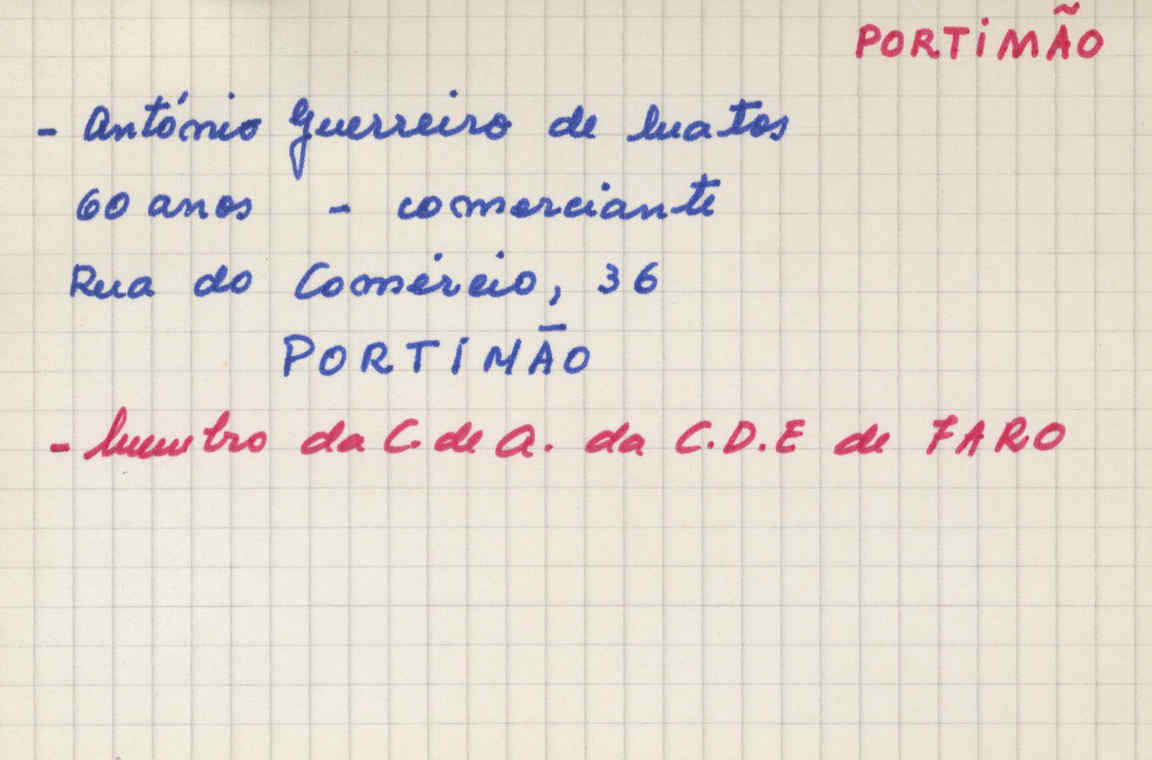 PORTIMÃO
- António Guerreiro de Matos
60 anos - comerciante
Rua do Comércio, 36
PORTIMÃO
- Membro da C. de A. da C.D.E de FARO